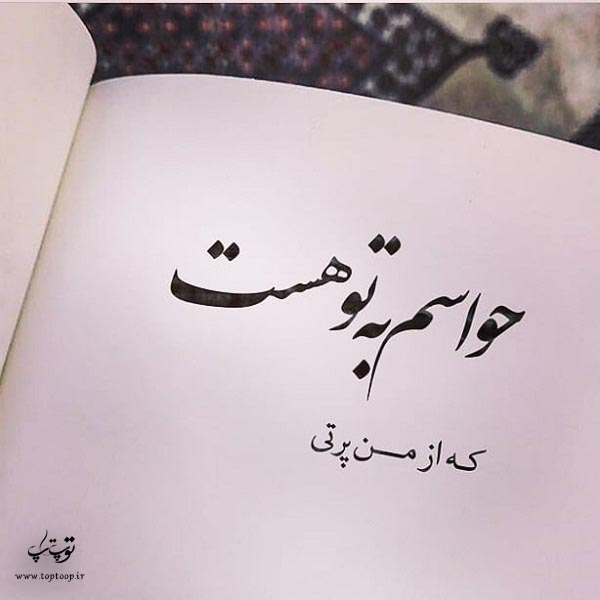 حواسم به تو هست
که از من پرتی
توپ تاپ
www.toptoop.ir